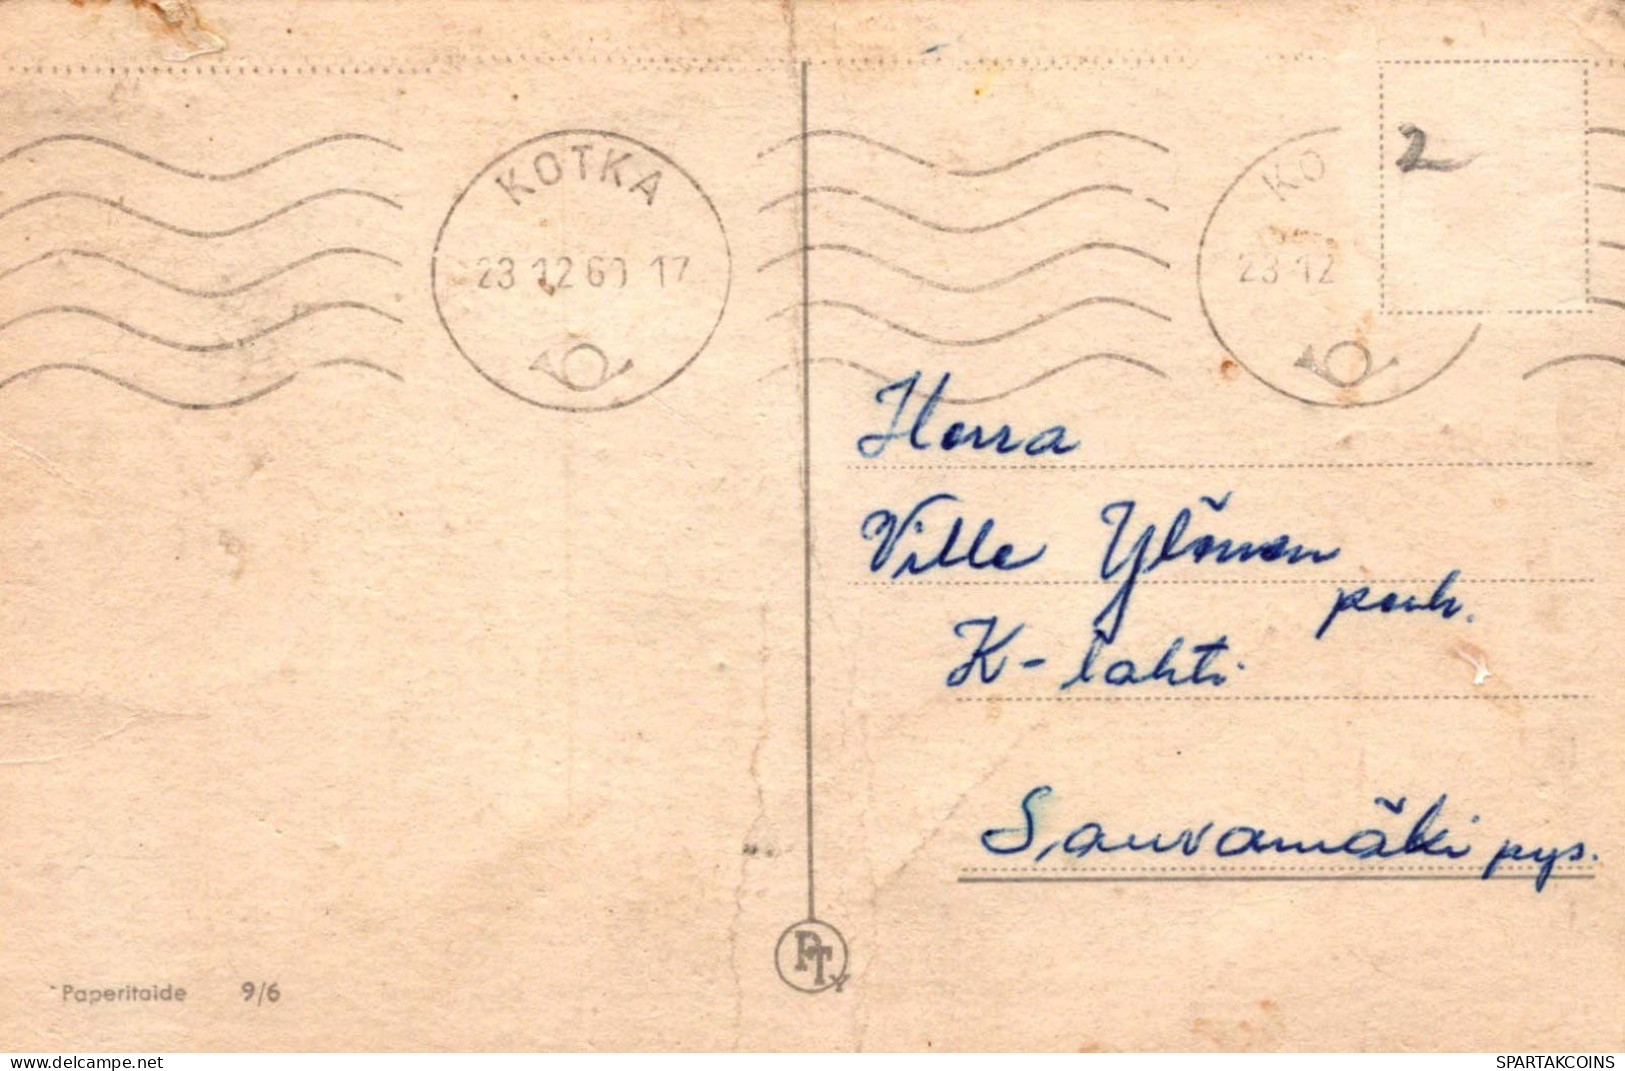 KOTKA
23 12 60 17
KO
23 12
2
Herra
Ville Ylönen
K-lahti
Sauvamäki pys.
PTY
Paperitaide 9/6
delcampe.net
SPARTAKCOINS